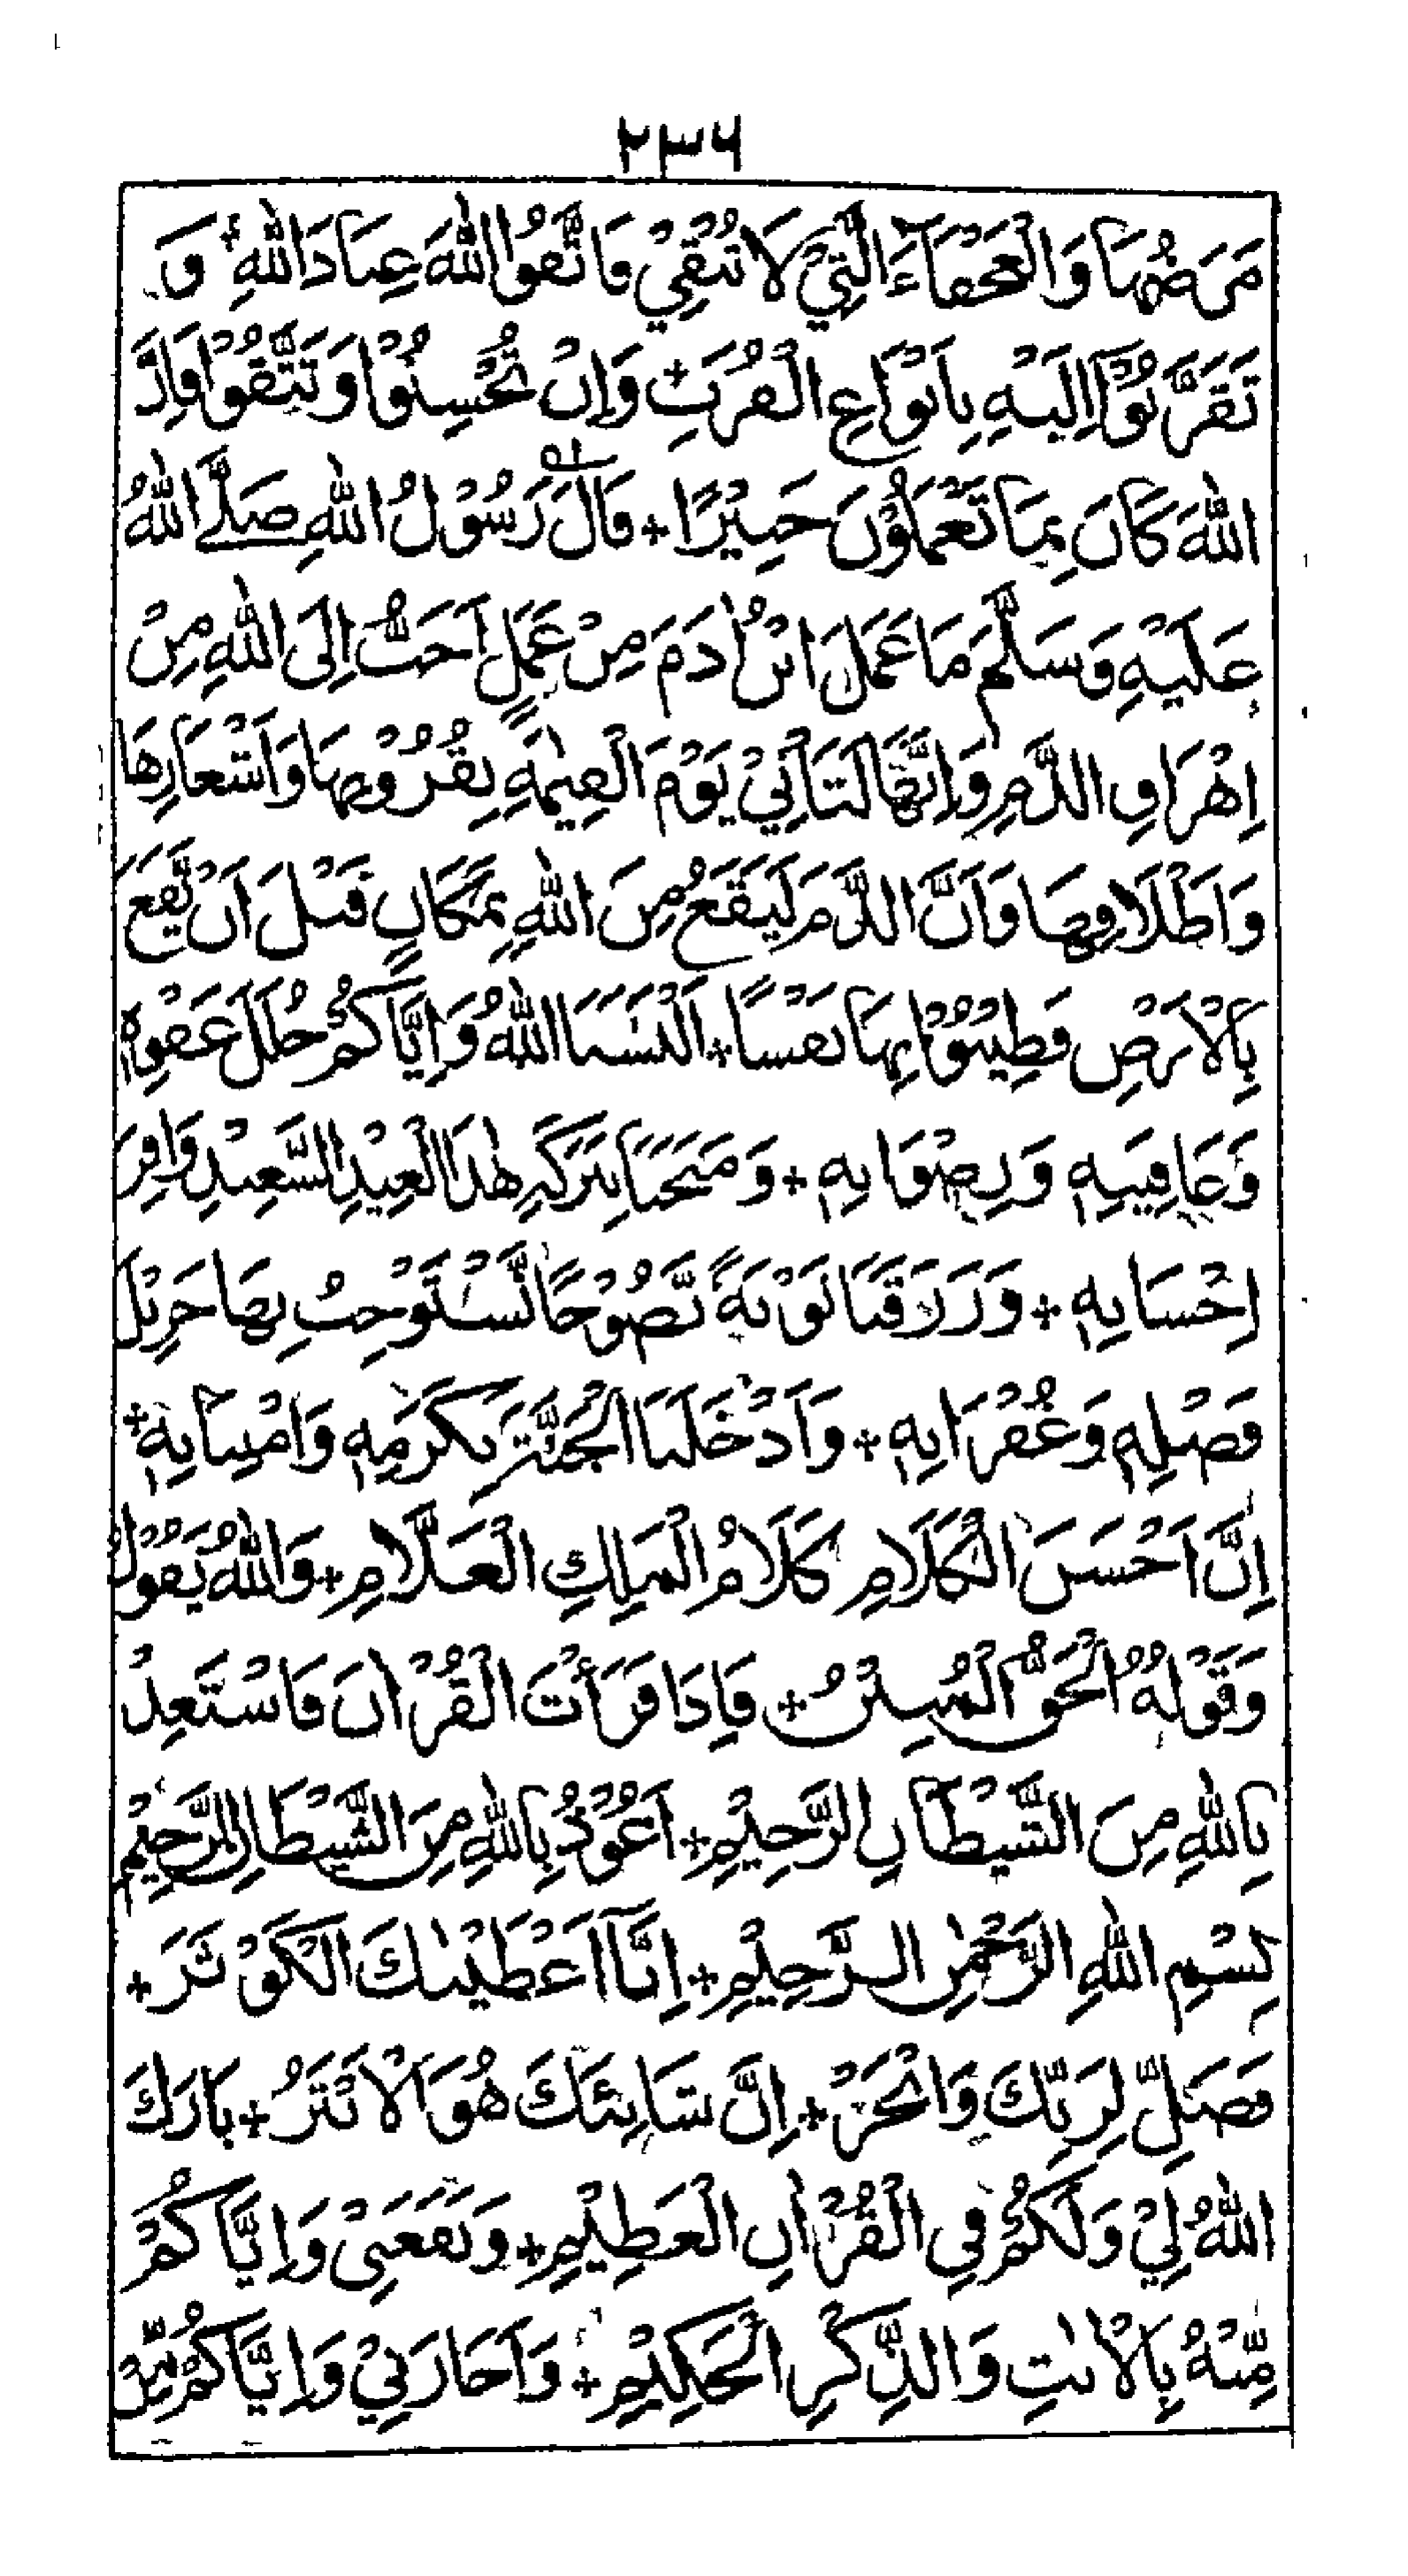 ۲۳۶
مَرَضُهَا وَالْعَجْفَاءَ الَّتِيْ لَا تُنْقِيْ فَاتَّقُوا اللّٰهَ عِبَادَ اللّٰهِ وَ
تَقَرَّبُوْا اِلَيْهِ بِاَنْوَاعِ الْقُرَبِ + وَاِنْ تُحْسِنُوْا وَتَتَّقُوْا فَاِنَّ
اللّٰهَ كَانَ بِمَا تَعْمَلُوْنَ خَبِيْرًا + قَالَ رَسُوْلُ اللّٰهِ صَلَّے اللّٰهُ
عَلَيْهِ وَسَلَّمَ مَا عَمِلَ ابْنُ اٰدَمَ مِنْ عَمَلٍ اَحَبُّ اِلَى اللّٰهِ مِنْ
اِهْرَاقِ الدَّمِ وَاِنَّهَا لَتَاْتِيْ يَوْمَ الْقِيٰمَةِ بِقُرُوْنِهَا وَاَشْعَارِهَا
وَاَظْلَافِهَا وَاَنَّ الدَّمَ لَيَقَعُ مِنَ اللّٰهِ بِمَكَانٍ قَبْلَ اَنْ يَّقَعَ
بِالْاَرْضِ فَطِيْبُوْا بِهَا نَفْسًا + اَلْبَسَنَا اللّٰهُ وَاِيَّاكُمْ حُلَلَ عَفْوِهٖ
وَعَافِيَتِهٖ وَرِضْوَانِهٖ + وَمَنَحَنَا بِبَرَكَةِ هٰذَا الْعِيْدِ السَّعِيْدِ وَافِرَ
اِحْسَانِهٖ + وَرَزَقَنَا تَوْبَةً نَّصُوْحًا نَّسْتَوْجِبُ بِهَا جَزِيْلَ
فَضْلِهٖ وَغُفْرَانِهٖ + وَاَدْخَلَنَا الْجَنَّةَ بِكَرَمِهٖ وَامْتِنَانِهٖ +
اِنَّ اَحْسَنَ الْكَلَامِ كَلَامُ الْمَلِكِ الْعَلَّامِ + وَاللّٰهُ يَقُوْلُ
وَقَوْلُهُ الْحَقُّ الْمُبِيْنُ + فَاِذَا قَرَأْتَ الْقُرْاٰنَ فَاسْتَعِذْ
بِاللّٰهِ مِنَ الشَّيْطَانِ الرَّجِيْمِ + اَعُوْذُ بِاللّٰهِ مِنَ الشَّيْطَانِ الرَّجِيْمِ
بِسْمِ اللّٰهِ الرَّحْمٰنِ الرَّحِيْمِ + اِنَّآ اَعْطَيْنٰكَ الْكَوْثَرَ +
فَصَلِّ لِرَبِّكَ وَانْحَرْ + اِنَّ شَانِئَكَ هُوَ الْاَبْتَرُ + بَارَكَ
اللّٰهُ لِيْ وَلَكُمْ فِي الْقُرْاٰنِ الْعَظِيْمِ + وَنَفَعَنِيْ وَاِيَّاكُمْ
مِّنْهُ بِالْاٰيٰتِ وَالذِّكْرِ الْحَكِيْمِ + وَاَجَارَنِيْ وَاِيَّاكُمْ مِّنْ